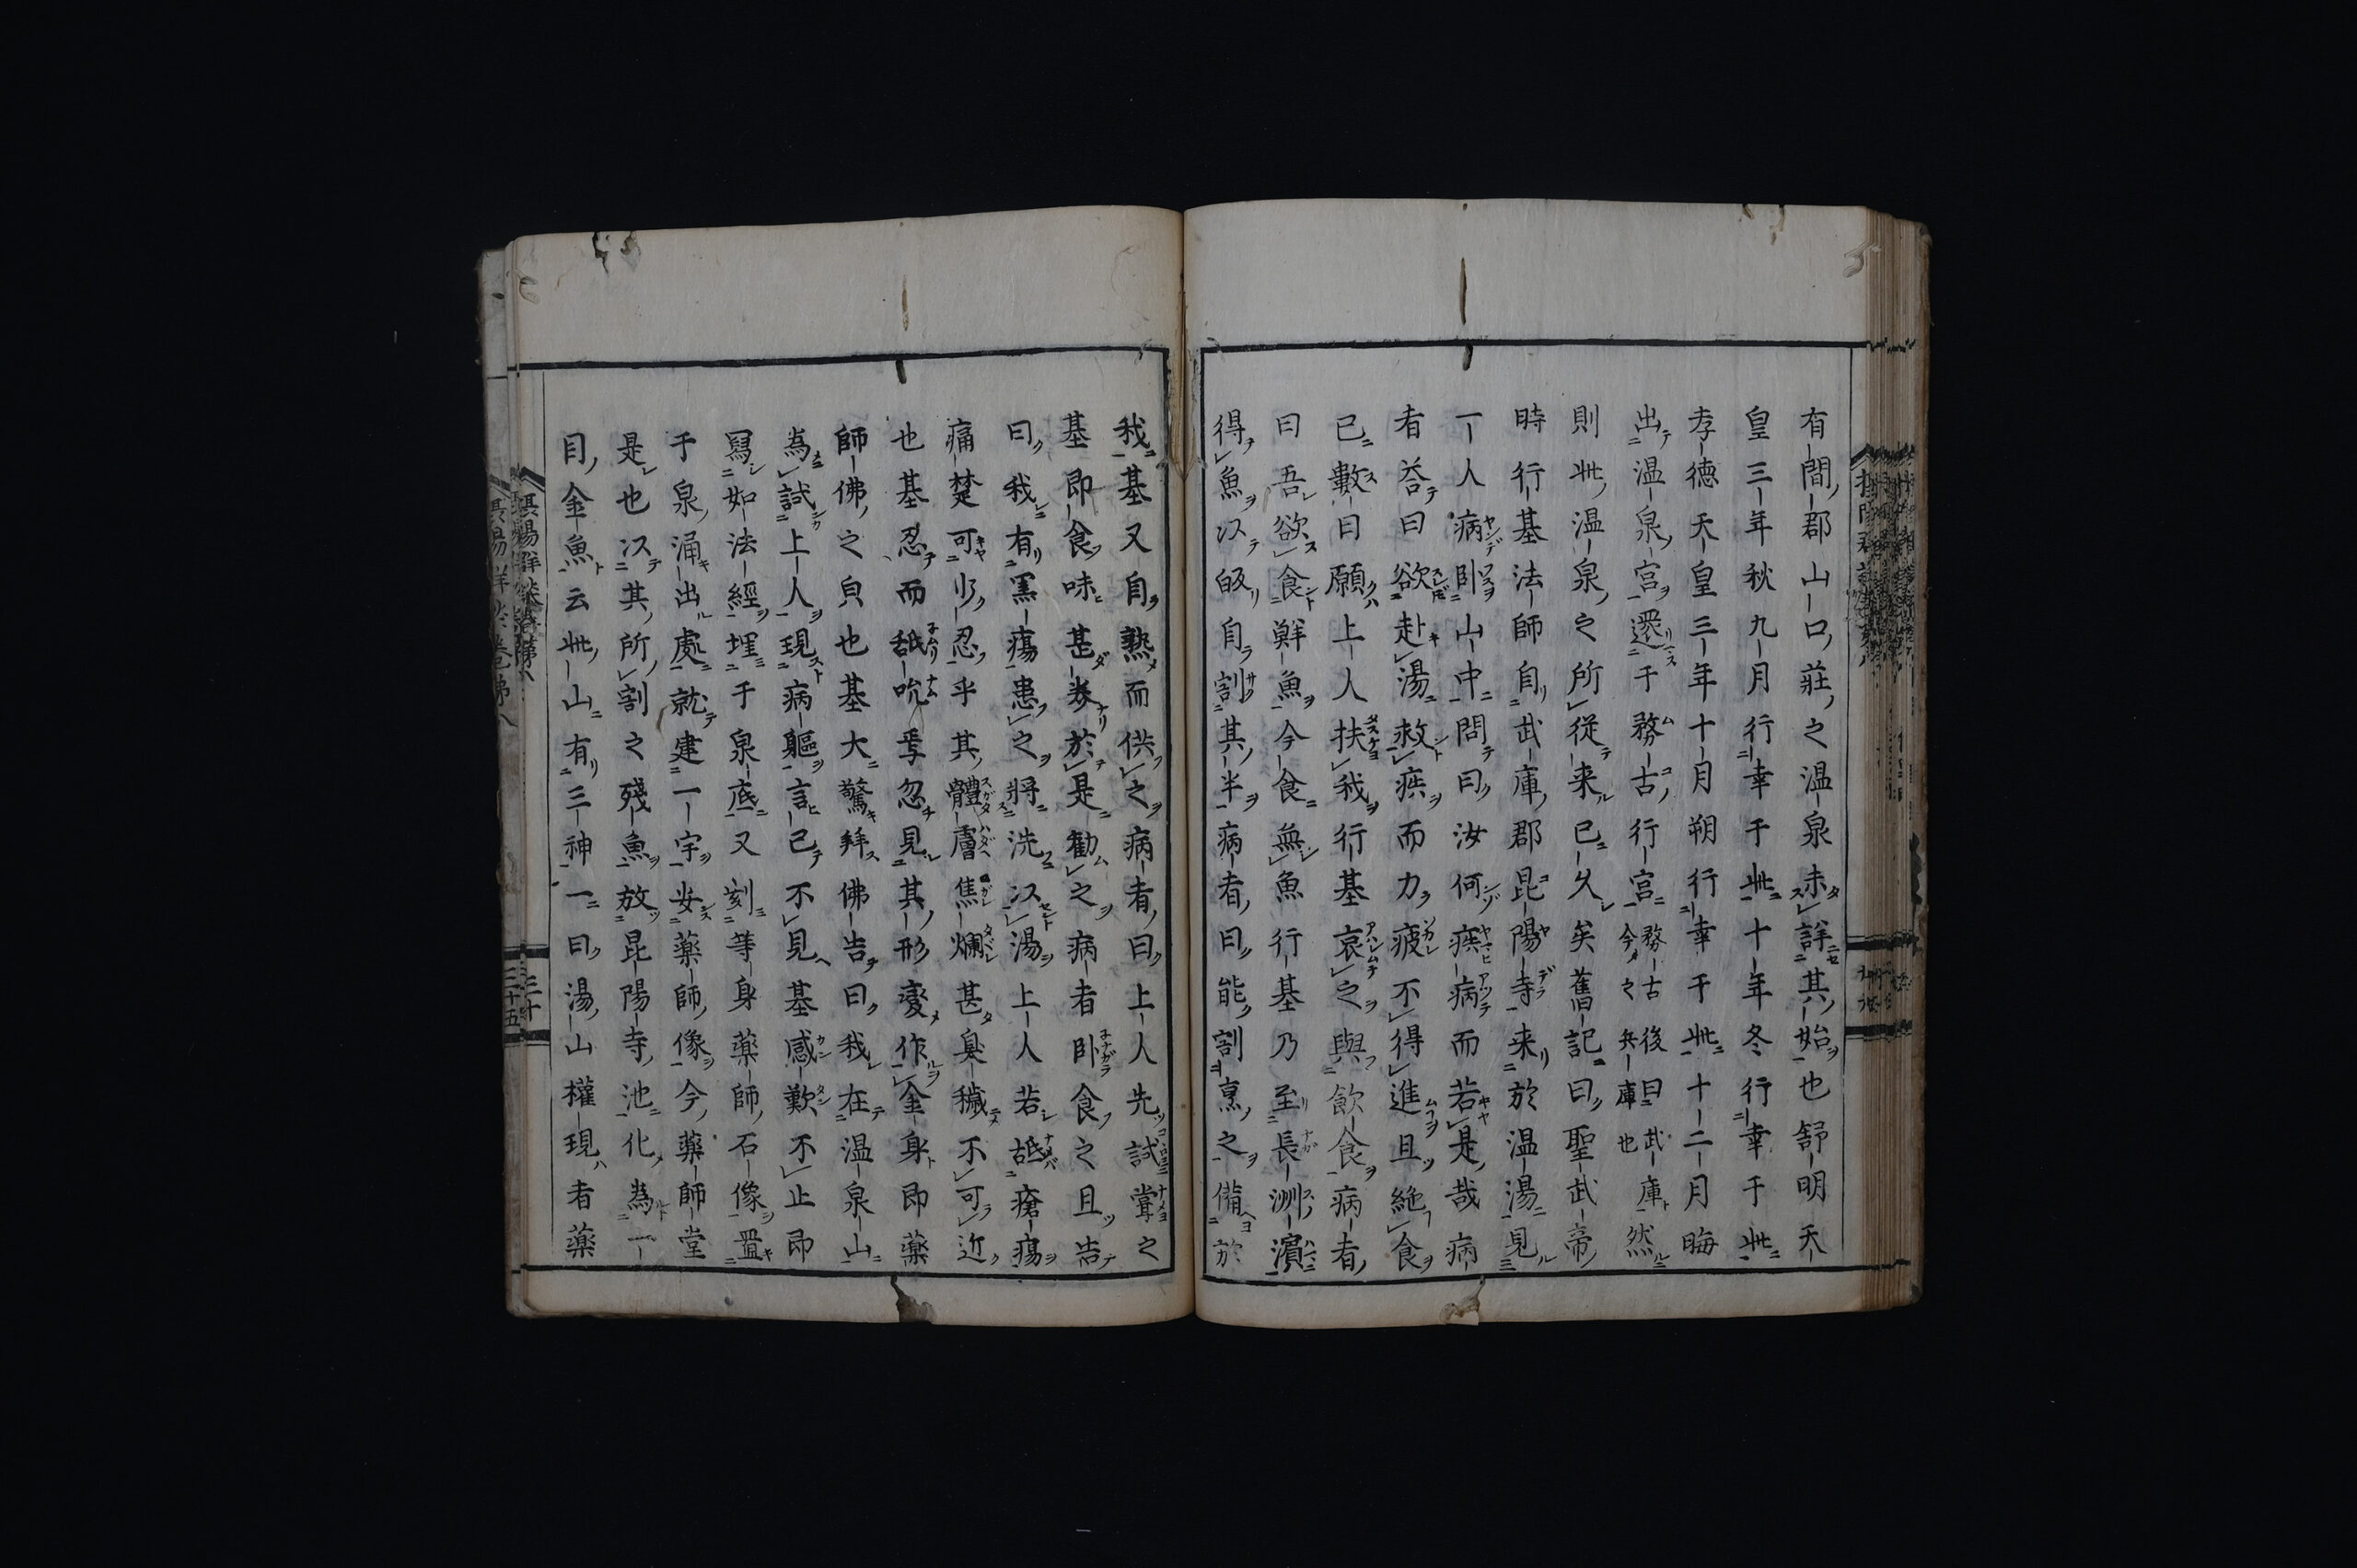 有間郡山口莊之温泉未詳其始也舒明天
皇三年秋九月行幸于此十年冬行幸于此
孝徳天皇三年十月朔行幸于此十二月晦
出温泉宮還于務古行宮務古後曰武庫今之兵庫也然
則此温泉之所従来已久矣舊記曰聖武帝
時行基法師自武庫郡昆陽寺来於温湯見
一人病卧山中問曰汝何疾病而若是哉病
者荅曰欲赴湯救疾而力疲不得進且絶食
已數日願上人扶我行基哀之與飲食病者
曰吾欲食鮮魚今食無魚行基乃至長洲濱
得魚以皈自割其半病者曰能割烹之備於
我基又自熟而供之病者曰上人先試甞之
基即食味甚美於是勧之病者卧食之且告
曰我有䍤瘍患之将洗以湯上人若舐瘡瘍
痛楚可少忍乎其體膚焦爛甚臭穢不可近
也基忍而舐吮焉忽見其形變作金身即薬
師佛之皃也基大驚拜佛告曰我在温泉山
為試上人現病軀言已不見基感歎不止即
冩如法經埋于泉底又刻等身薬師石像置
于泉涌出處就建一宇安薬師像今薬師堂
是也以其所割之殘魚放昆陽寺池化為一
目金魚云此山有三神一曰湯山權現者薬
摂陽群談巻第八
三十
三十五